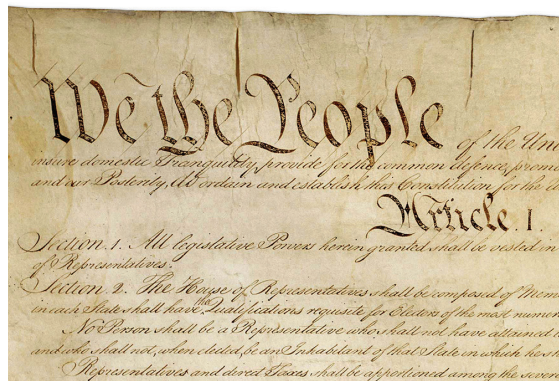 We the People of the Uni
insure domestic Tranquility, provide for the common defence, promo
and our Posterity, do ordain and establish this Constitution for the
Article. I.
Section. 1. All legislative Powers herein granted shall be vested in
of Representatives.
Section. 2. The House of Representatives shall be composed of Mem
in each State shall have the Qualifications requisite for Electors of the most numer
No Person shall be a Representative who shall not have attained
and who shall not, when elected, be an Inhabitant of that State in which he s
Representatives and direct Taxes shall be apportioned among the sever